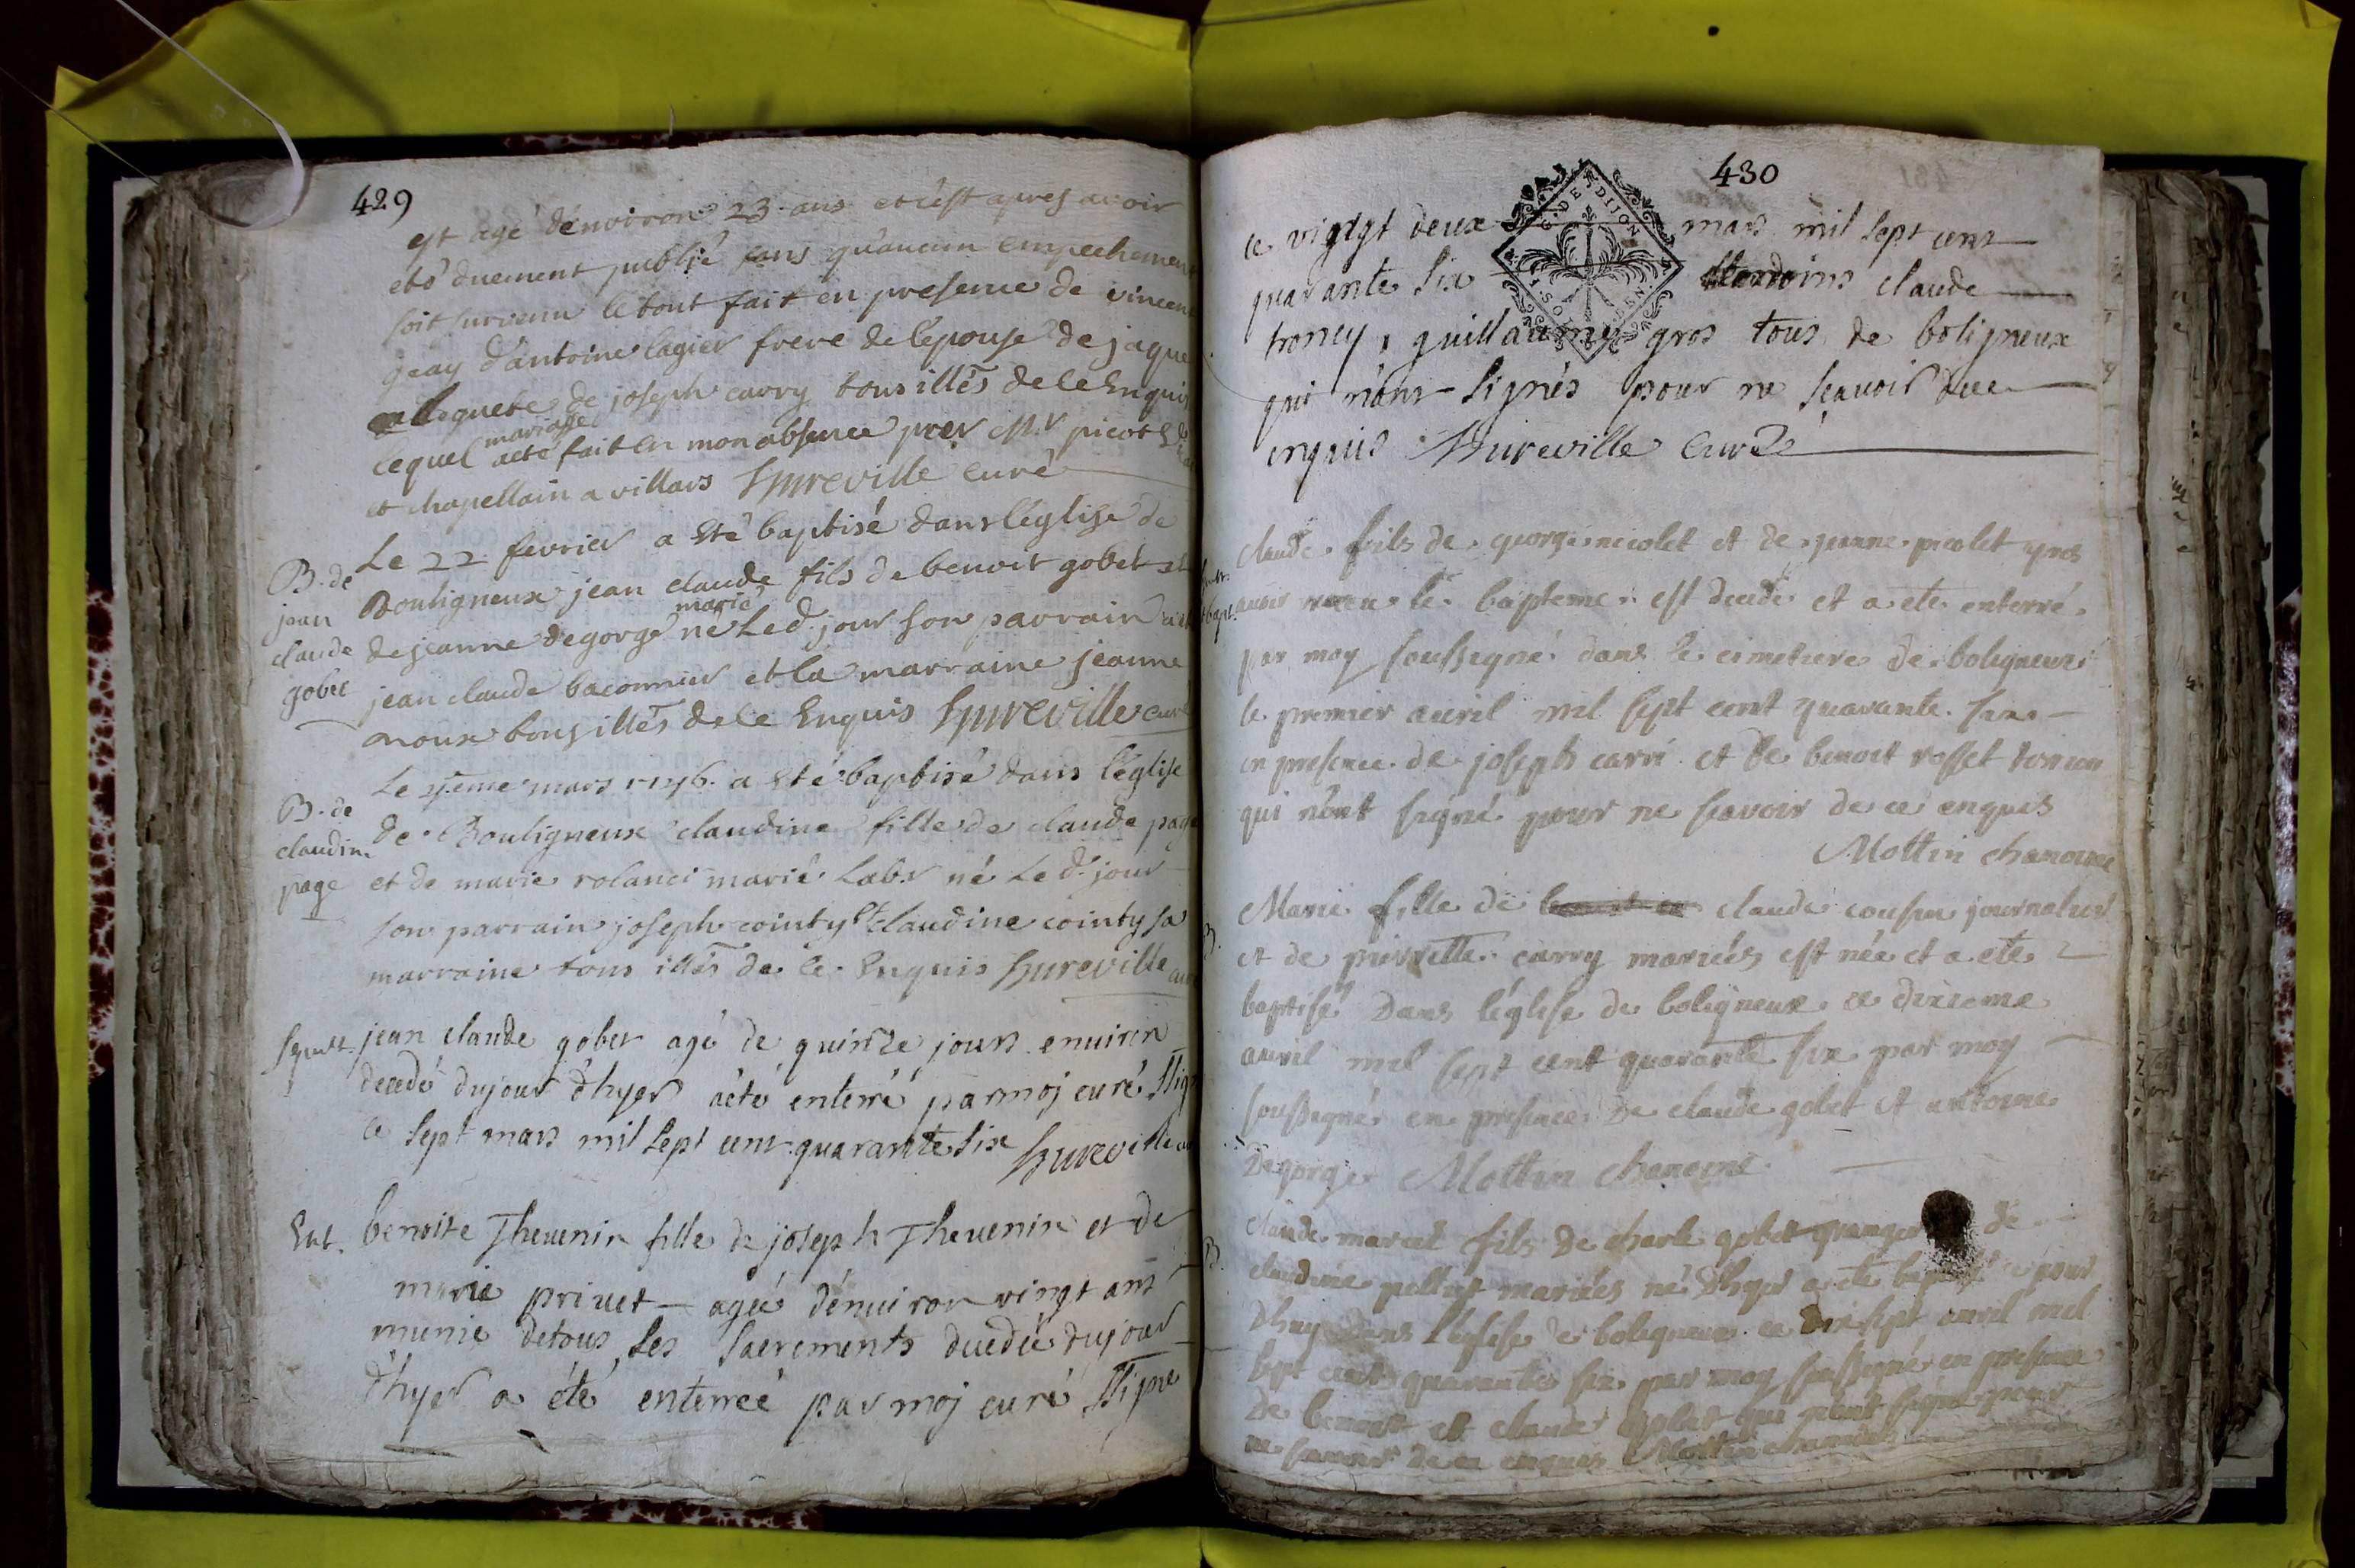 429
est agé d'environ 23 ans et c'est apres avoir
eté duement publié sans qu'aucun empechement
soit survenu le tout fait en presence de vincent
geay d'antoine lagier frere de l'epouse de jaque
de joseph carry tous illes de ce Enquis
mariage
lequel a eté fait en mon absence par Mr picot
et chapellain a villars hureville curé
B. de
jean
claude
gobet
Le 22 fevrier a Eté baptisé dans l'église de
Bouligneux jean claude fils de benoit gobet et
marié
de jeanne degorge né Led. jour son parrain a eté
jean claude baconnier et la marraine jeanne
tous illes de ce Enquis hureville curé
B. de
claudin.
page
Le mars 1746. a Eté baptisé dans l'église
de Bouligneux claudine fille de claude page
et de marie rolanci marié Labr né Le d. jour
son parrain joseph cointy et claudine cointy sa
marraine tous illes de ce Enquis hureville curé
Sepult.
jean claude gobet agé de quinze jours environ
decedé du jour d'hyer a été enterré par moj curé ssigné
ce sept mars mil sept cent quarante six hureville
Ent.
benoite Thevenin fille de joseph Thevenin et de
marie privet agée d'environ vingt ans
munie de tous les sacrements decedée du jour
d'hyer a été enterreé par moj curé ssigné
430
G. DE DIJON
ce vigtgt deux mars mil sept cent
quarante six claude
troncy, guillaume gros tous de boligneux
qui n'ont signés pour ne sçavoir de ce
enquis hureville curé
claude fils de george nicolet et de jeanne picolet apres
avoir receu le bapteme est decedé et a eté enterré
par moy soussigné dans le cimetiere de boligneux
le premier avril mil sept cent quarante six
en presence de joseph carri et de benoit rosset
qui n'ont signé pour ne scavoir de ce enques
Mottin chanoine
B.
Marie fille de claude cousin journalier
et de pierrette carry mariés est née et a eté
baptisé dans l'église de boligneux ce dixieme
avril mil sept cent quarante six par moy
soussigné en presence de claude gobet et antoine
Degorge Mottin chanoine
B.
claude marcel fils de charle gobet granger de
claudine pellut mariés né d'hyer a eté
dans l'eglise de boligneux ce dix sept avril mil
sept cent quarante six par moy soussigné en presence
De benoit et claude gobet qui n'ont signé pour
ne scavoir de ce enques Mottin chanoine